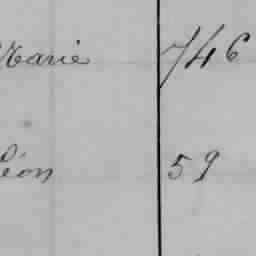 Marie 746
Léon 59